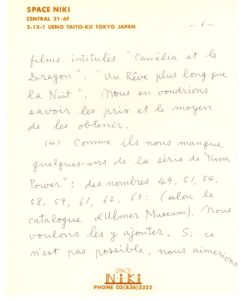 SPACE NIKI
CENTRAL 21-6F
2-12-1 UENO TAITO-KU TOKYO JAPAN
films intitulés "Camélia et le
Dragon". "Un Rêve plus long que
la Nuit". Nous en voudrions
savoir les prix et le moyen
de les obtenir.
(4) Comme ils nous manque
quelques-uns de la série de "Nim
Power": des nombres 49, 51, 54,
58, 59, 61, 62, 63: (selon le
catalogue d'Ulmer Museum). Nous
voulons les y ajouter. Si ce
n'est pas possible, nous aimerions
SPACE
NIKI
PHONE 03(836)2322